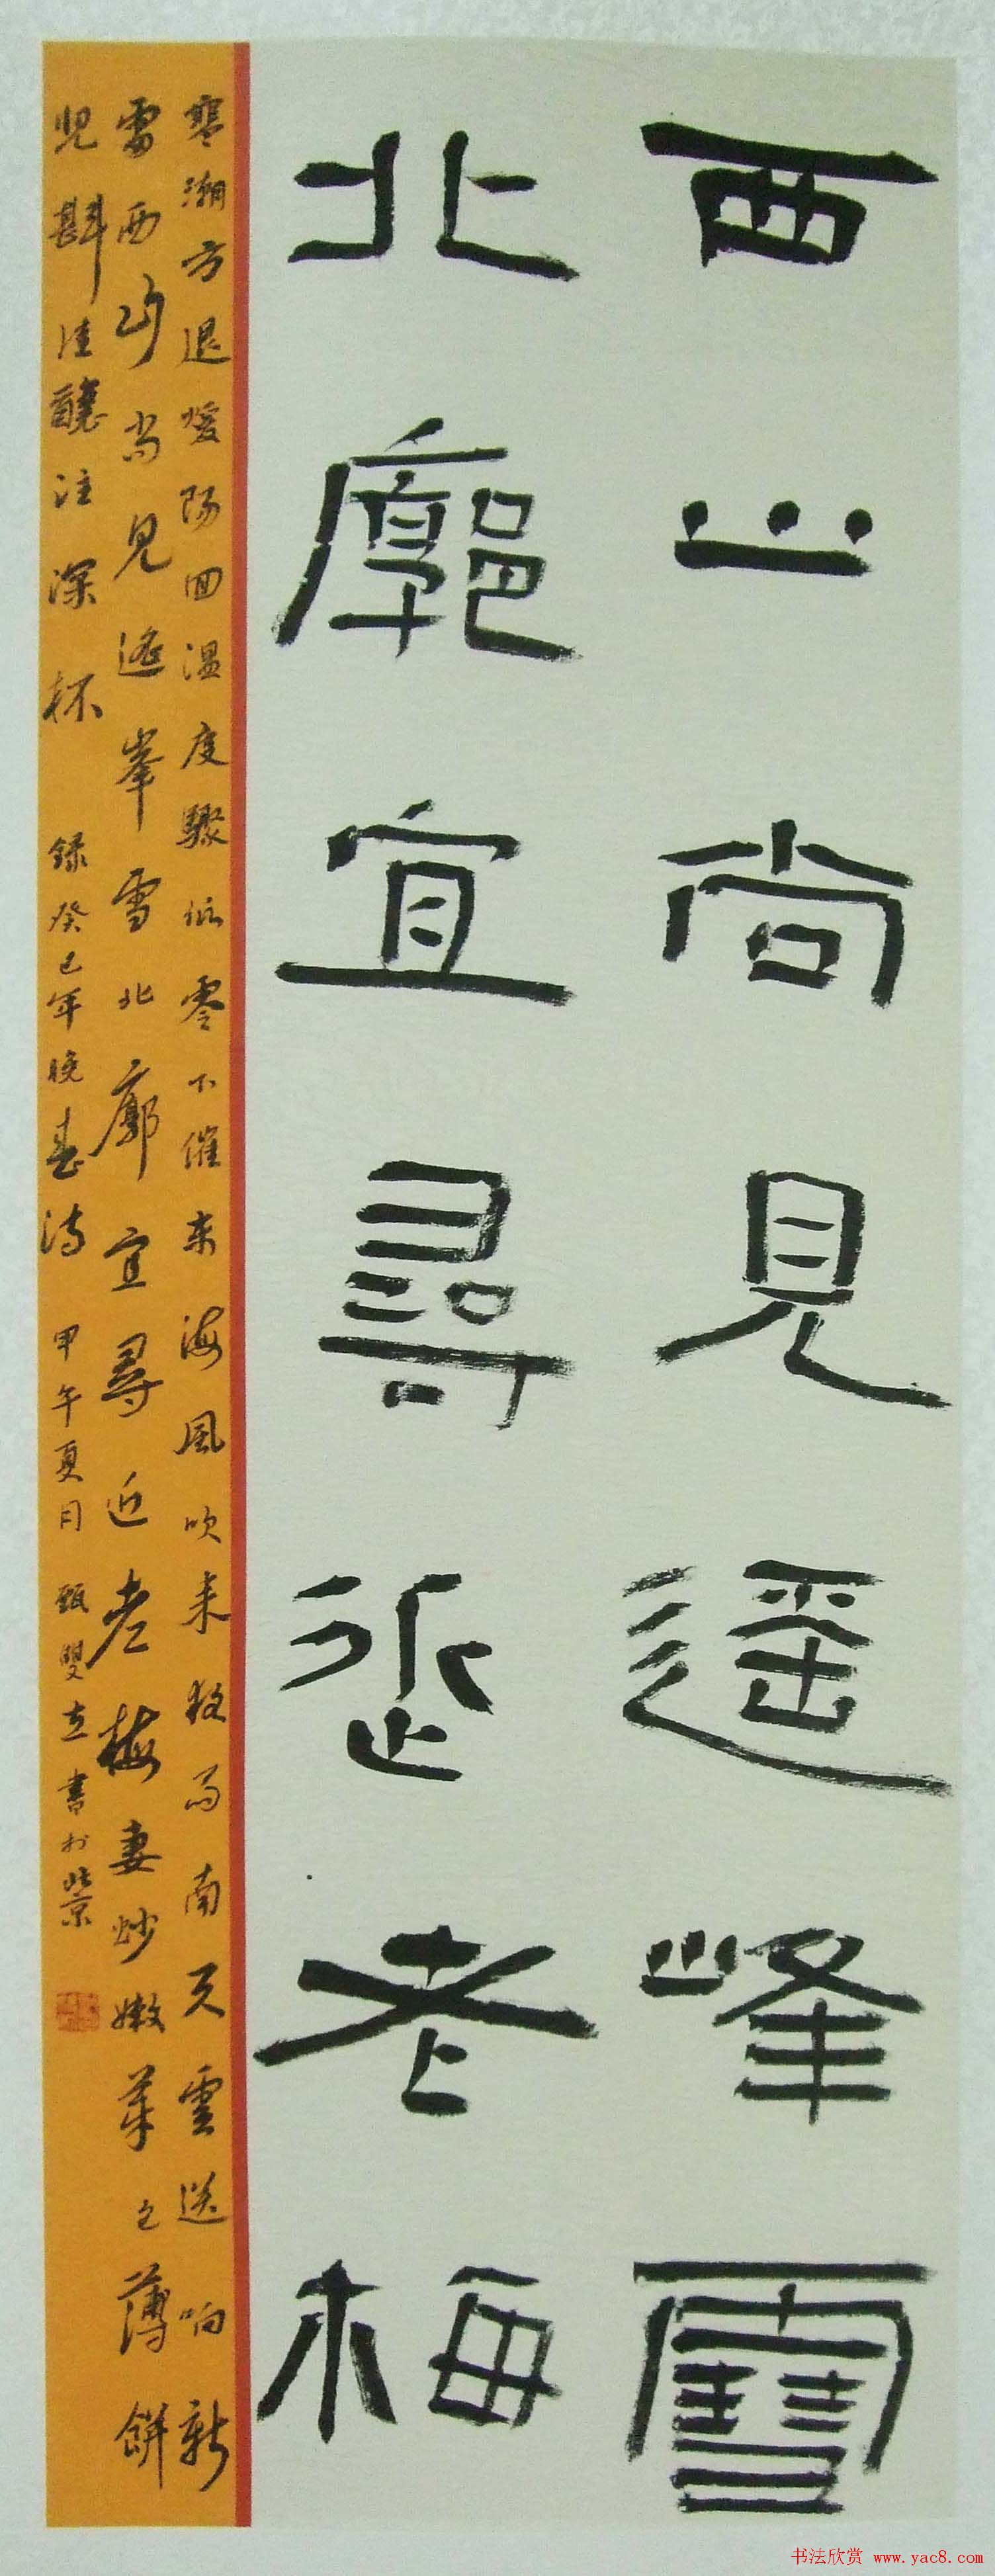 西山尚見遥峰雪
北廓宜尋近老梅
寒潮方退煖陽回温度驟低零下催东海風吹来南天雲送响新
雷西山尚見遥峯雪北廓宜尋近老梅妻炒嫩芽包薄餅
児斟佳釀注深杯 録癸巳年晚春诗 甲午夏月 甄雙立書於北京
书法欣赏 www.yac8.com